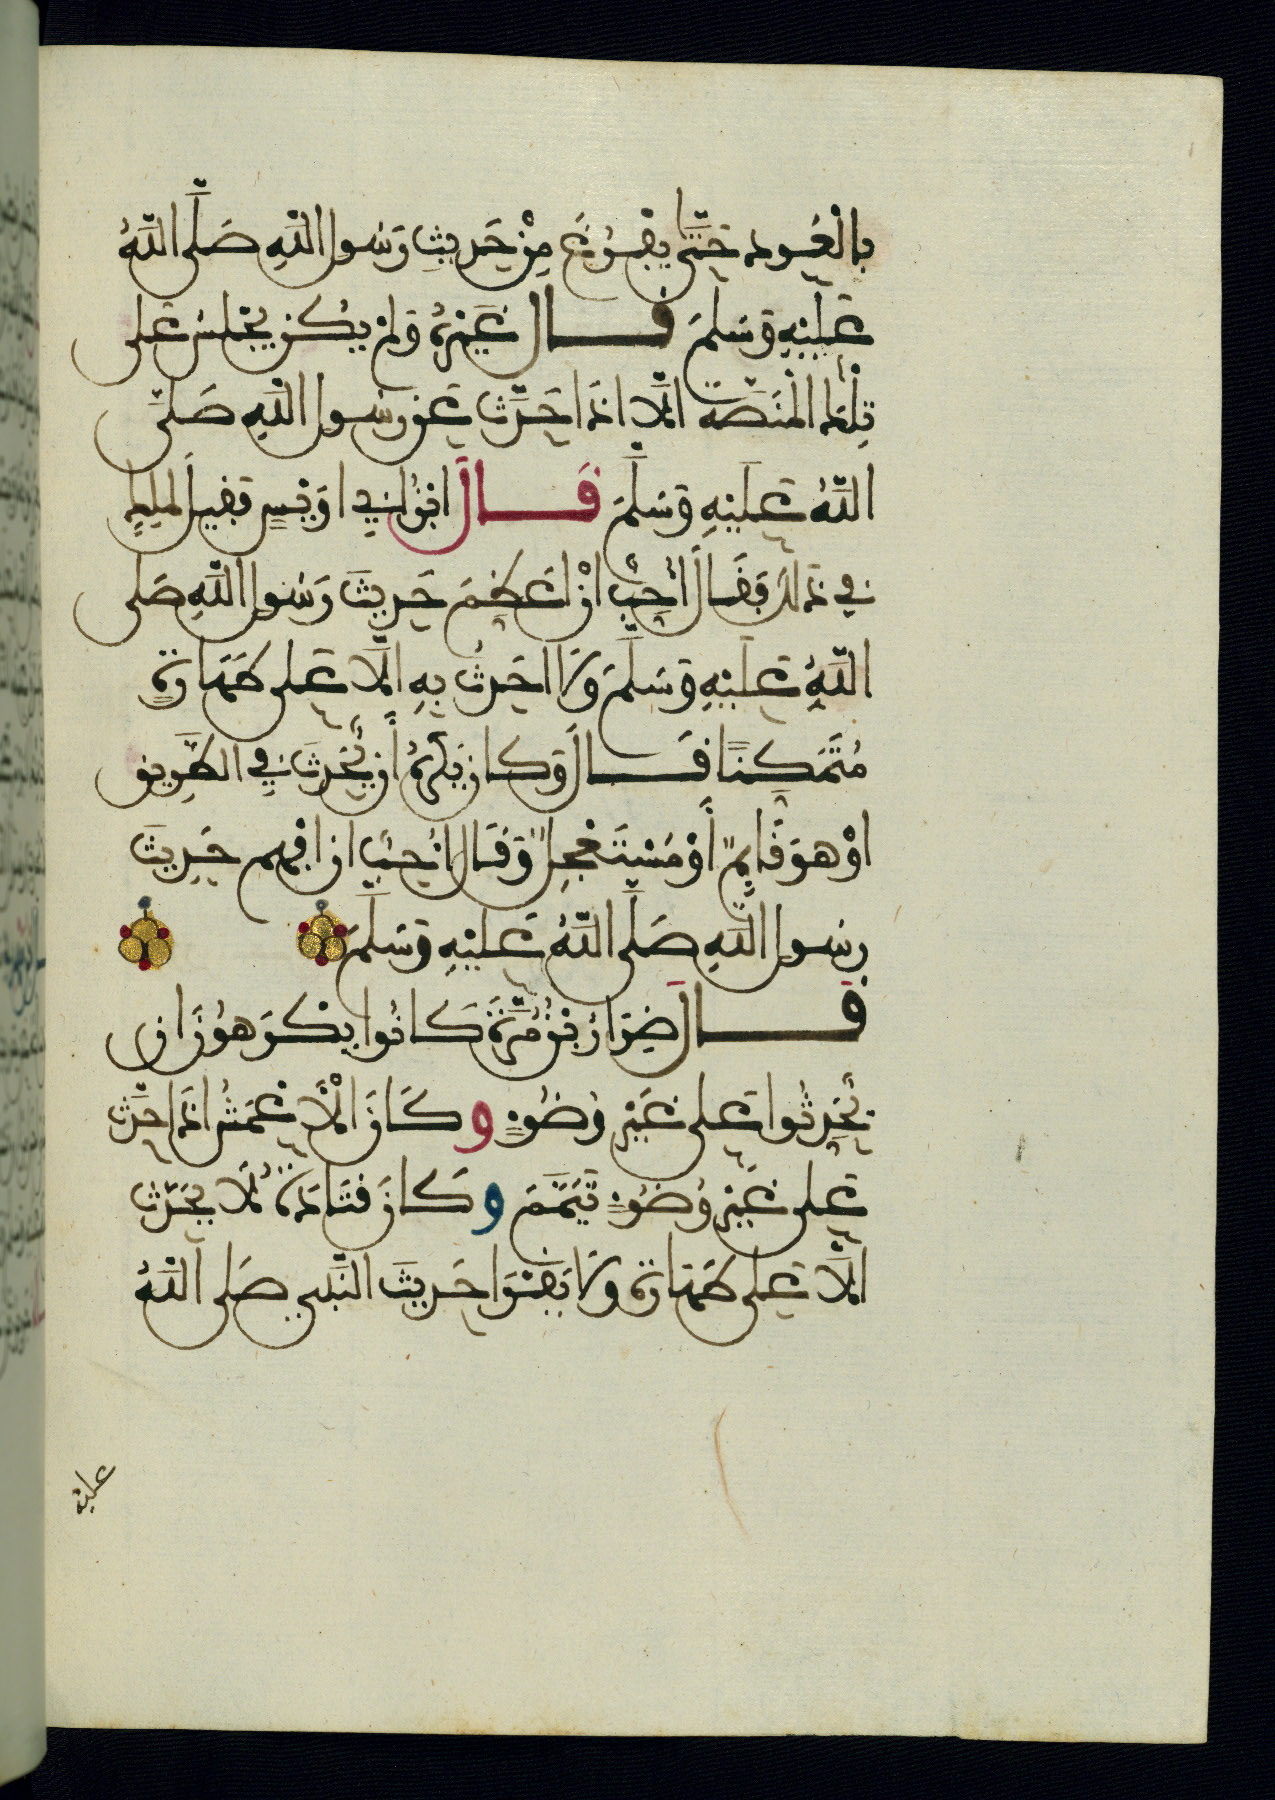 بِالْعُودِ حَتَّى يَفْرُغَ مِنْ حَدِيثِ رَسُولِ اللَّهِ صَلَّى اللَّهُ
عَلَيْهِ وَسَلَّمَ قَالَ غَيْرُهُ وَلَمْ يَكُنْ يَجْلِسُ عَلَى
تِلْكَ الْمَنَصَّةِ إِلَّا إِذَا حَدَّثَ عَنْ رَسُولِ اللَّهِ صَلَّى
اللَّهُ عَلَيْهِ وَسَلَّمَ قَالَ ابْنُ أَبِي أُوَيْسٍ فَقِيلَ لِمَالِكٍ
فِي ذَلِكَ فَقَالَ أُحِبُّ أَنْ أُعَظِّمَ حَدِيثَ رَسُولِ اللَّهِ صَلَّى
اللَّهُ عَلَيْهِ وَسَلَّمَ وَلَا أُحَدِّثُ بِهِ إِلَّا عَلَى طَهَارَةٍ
مُتَمَكِّنًا قَالَ وَكَانَ يَكْرَهُ أَنْ يُحَدِّثَ فِي الطَّرِيقِ
أَوْ هُوَ قَائِمٌ أَوْ مُسْتَعْجِلٌ وَقَالَ أُحِبُّ أَنْ أُفْهِمَ حَدِيثَ
رَسُولِ اللَّهِ صَلَّى اللَّهُ عَلَيْهِ وَسَلَّمَ
قَالَ ضِرَارُ بْنُ مُرَّةَ كَانُوا يَكْرَهُونَ أَنْ
يُحَدِّثُوا عَلَى غَيْرِ وُضُوءٍ وَكَانَ الْأَعْمَشُ إِذَا حَدَّثَ
عَلَى غَيْرِ وُضُوءٍ تَيَمَّمَ وَكَانَ قَتَادَةُ لَا يُحَدِّثُ
إِلَّا عَلَى طَهَارَةٍ وَلَا يَقْرَأُ حَدِيثَ النَّبِيِّ صَلَّى اللَّهُ
عليه